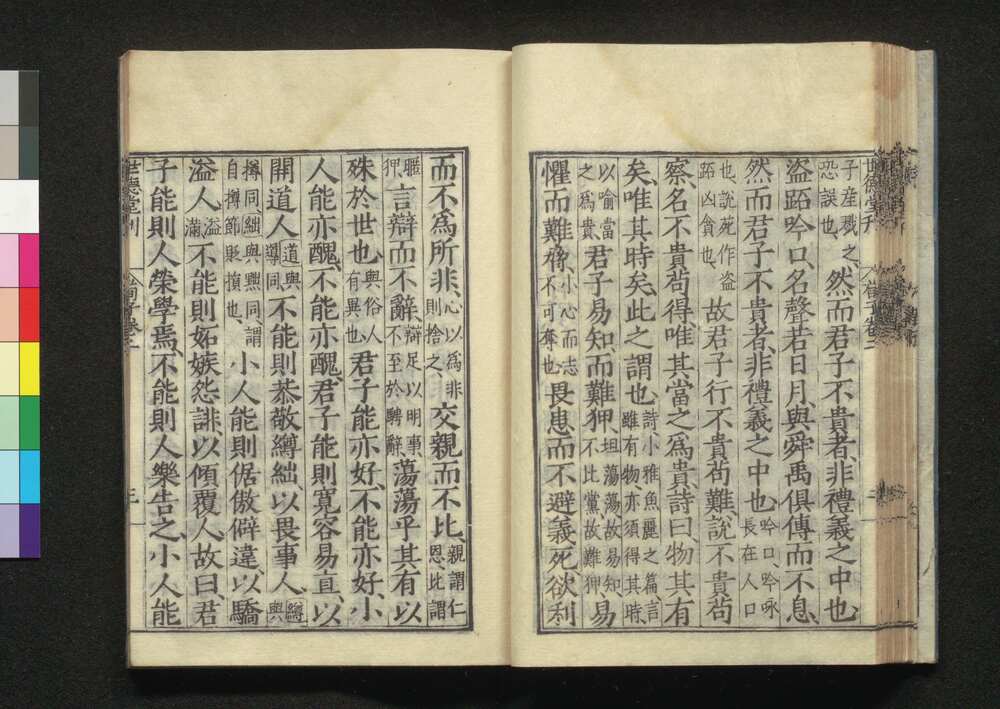 世德堂刊
子産戮之、恐誤也、然而君子不貴者、非禮義之中也、
盜跖吟口、名聲若日月、與舜禹俱傳而不息、
然而君子不貴者、非禮義之中也、吟口、吟咏長在人口
也、說苑作盜跖凶貪也、故君子行不貴苟難、說不貴苟
察、名不貴苟得、唯其當之爲貴、詩曰、物其有
矣、唯其時矣、此之謂也、詩小雅魚麗之篇、言雖有物、亦須得其時、
以喻當之爲貴君子易知而難狎、坦蕩蕩、故易知、不比黨、故難狎易
懼而難脅、小心而志不可奪也畏患而不避義死、欲利
而不爲所非、心以爲非則捨之、交親而不比、親謂仁恩、比謂
暱狎、言辯而不辭、辯足以明事、不至於騁辭、蕩蕩乎其有以
殊於世也、與俗人有異也君子能亦好、不能亦好、小
人能亦醜、不能亦醜、君子能則寬容易直、以
開道人、道與導同、不能則恭敬繜絀以畏事人、繜與
撙同、絀與黜同、謂自撙節貶損也、小人能則倨傲僻違、以驕
溢人、溢滿、不能則妬嫉怨誹、以傾覆人、故曰、君
子能則人榮學焉、不能則人樂告之、小人能
世德堂刊 三